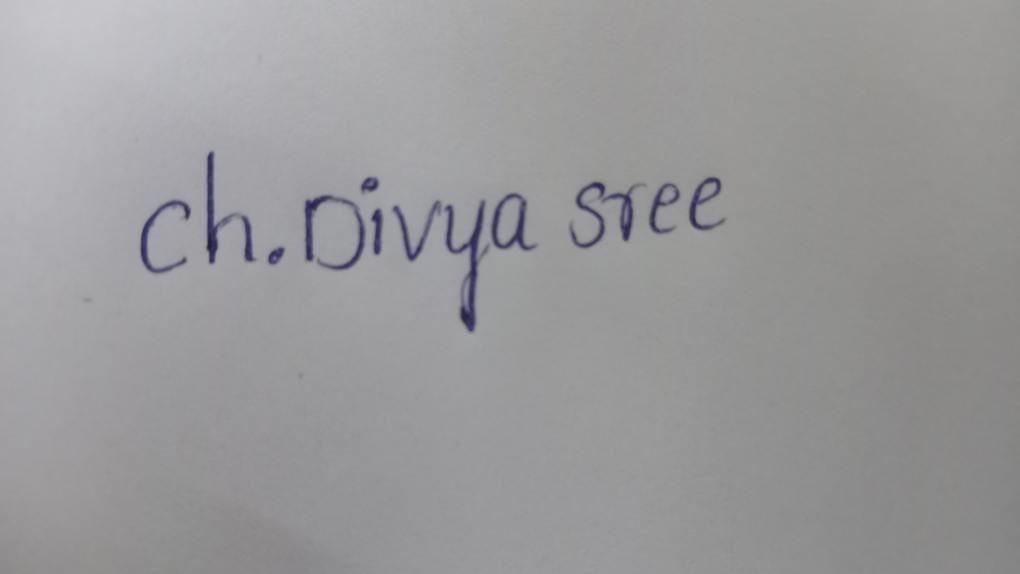 Ch. Divya sree